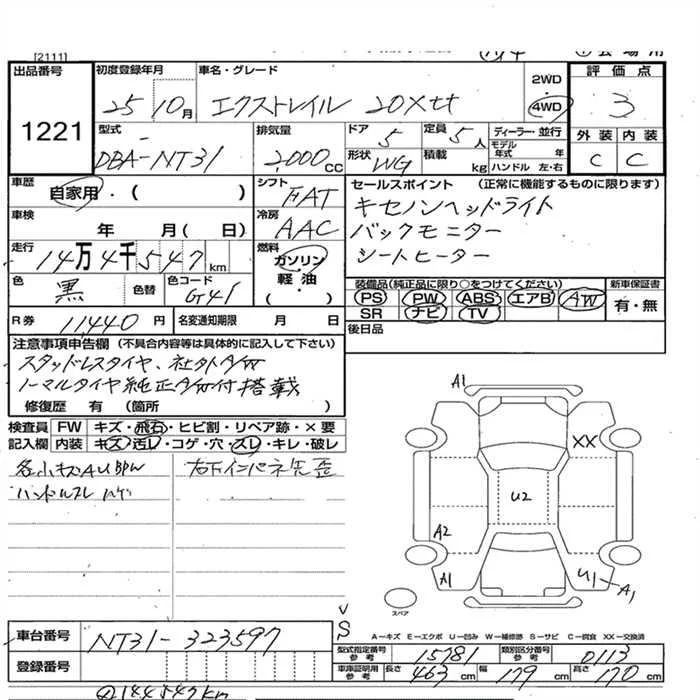 [2111]
出品番号
1221
初度登録年月
25 10月
車名・グレード
エクストレイル 20Xtt
2WD
4WD
評価点
3
外装 内装
C C
型式
DBA-NT31
排気量
2,000cc
ドア 5
定員 5人
形状 WG
積載 kg
ディーラー・並行
モデル年式 年
ハンドル 左・右
車歴
自家用・( )
シフト FAT
車検
年 月( 日)
冷房 AAC
走行
14万4千547km
燃料
ガソリン
軽油
( )
色 黒
色替
色コード G41
セールスポイント (正常に機能するものに限ります)
キセノンヘッドライト
バックモニター
シートヒーター
装備品(純正品に限り○をつけてください)
PS PW ABS エアB AW
SR ナビ TV
新車保証書
有・無
R券 11440円
名変通知期限 月 日
後日品
注意事項申告欄 (不具合内容等は具体的に記入して下さい)
スタッドレスタイヤ、社外A/W
ノーマルタイヤ純正A/W付搭載
修復歴 有 (箇所 )
検査員 FW キズ・飛石・ヒビ割・リペア跡・×要
記入欄 内装 キズ・汚レ・コゲ・穴・スレ・キレ・破レ
各小キズAU BPW
ハンドルスレ ハゲ
右下インパネ先歪
A1
XX
U2
A2
A1
U1
A1
スペア
V
S
A－キズ E－エクボ U－凹み W－補修跡 S－サビ C－腐食 XX－交換済
車台番号 NT31-323597
登録番号
型式指定番号 参考 15781
類別区分番号 参考 0113
車庫証明用 参考 長さ 463cm 幅 179cm 高さ 170cm
144547km